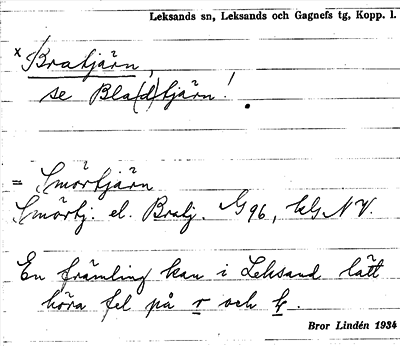 Leksands sn, Leksands och Gagnefs tg, Kopp. l.
x Bratjärn,
se Bla(d)tjärn!
= Smörtjärn
Smörtj. el. Bratj. G 96, NV.
En främling kan i Leksand lätt
höra fel på r och
Bror Lindén 1934